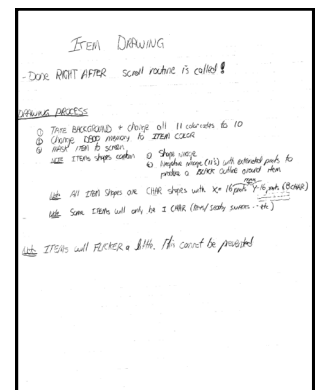 ITEM DRAWING
- Done RIGHT AFTER scroll routine is called!
DRAWING PROCESS
① TAKE BACKGROUND + change all 11 color codes to 10
② Change D800 memory to ITEM COLOR
③ MASK ITEM to screen
NOTE ITEMS shapes contain ① Shape image
② Negative image (11's) with extended parts to
produce a BLACK outline around item
Note All ITEM Shapes are CHAR shapes with X= 16 Y=16 (8 CHAR)
Note Some ITEMS will only be 1 CHAR
Note ITEMS will FLICKER a little. This cannot be prevented